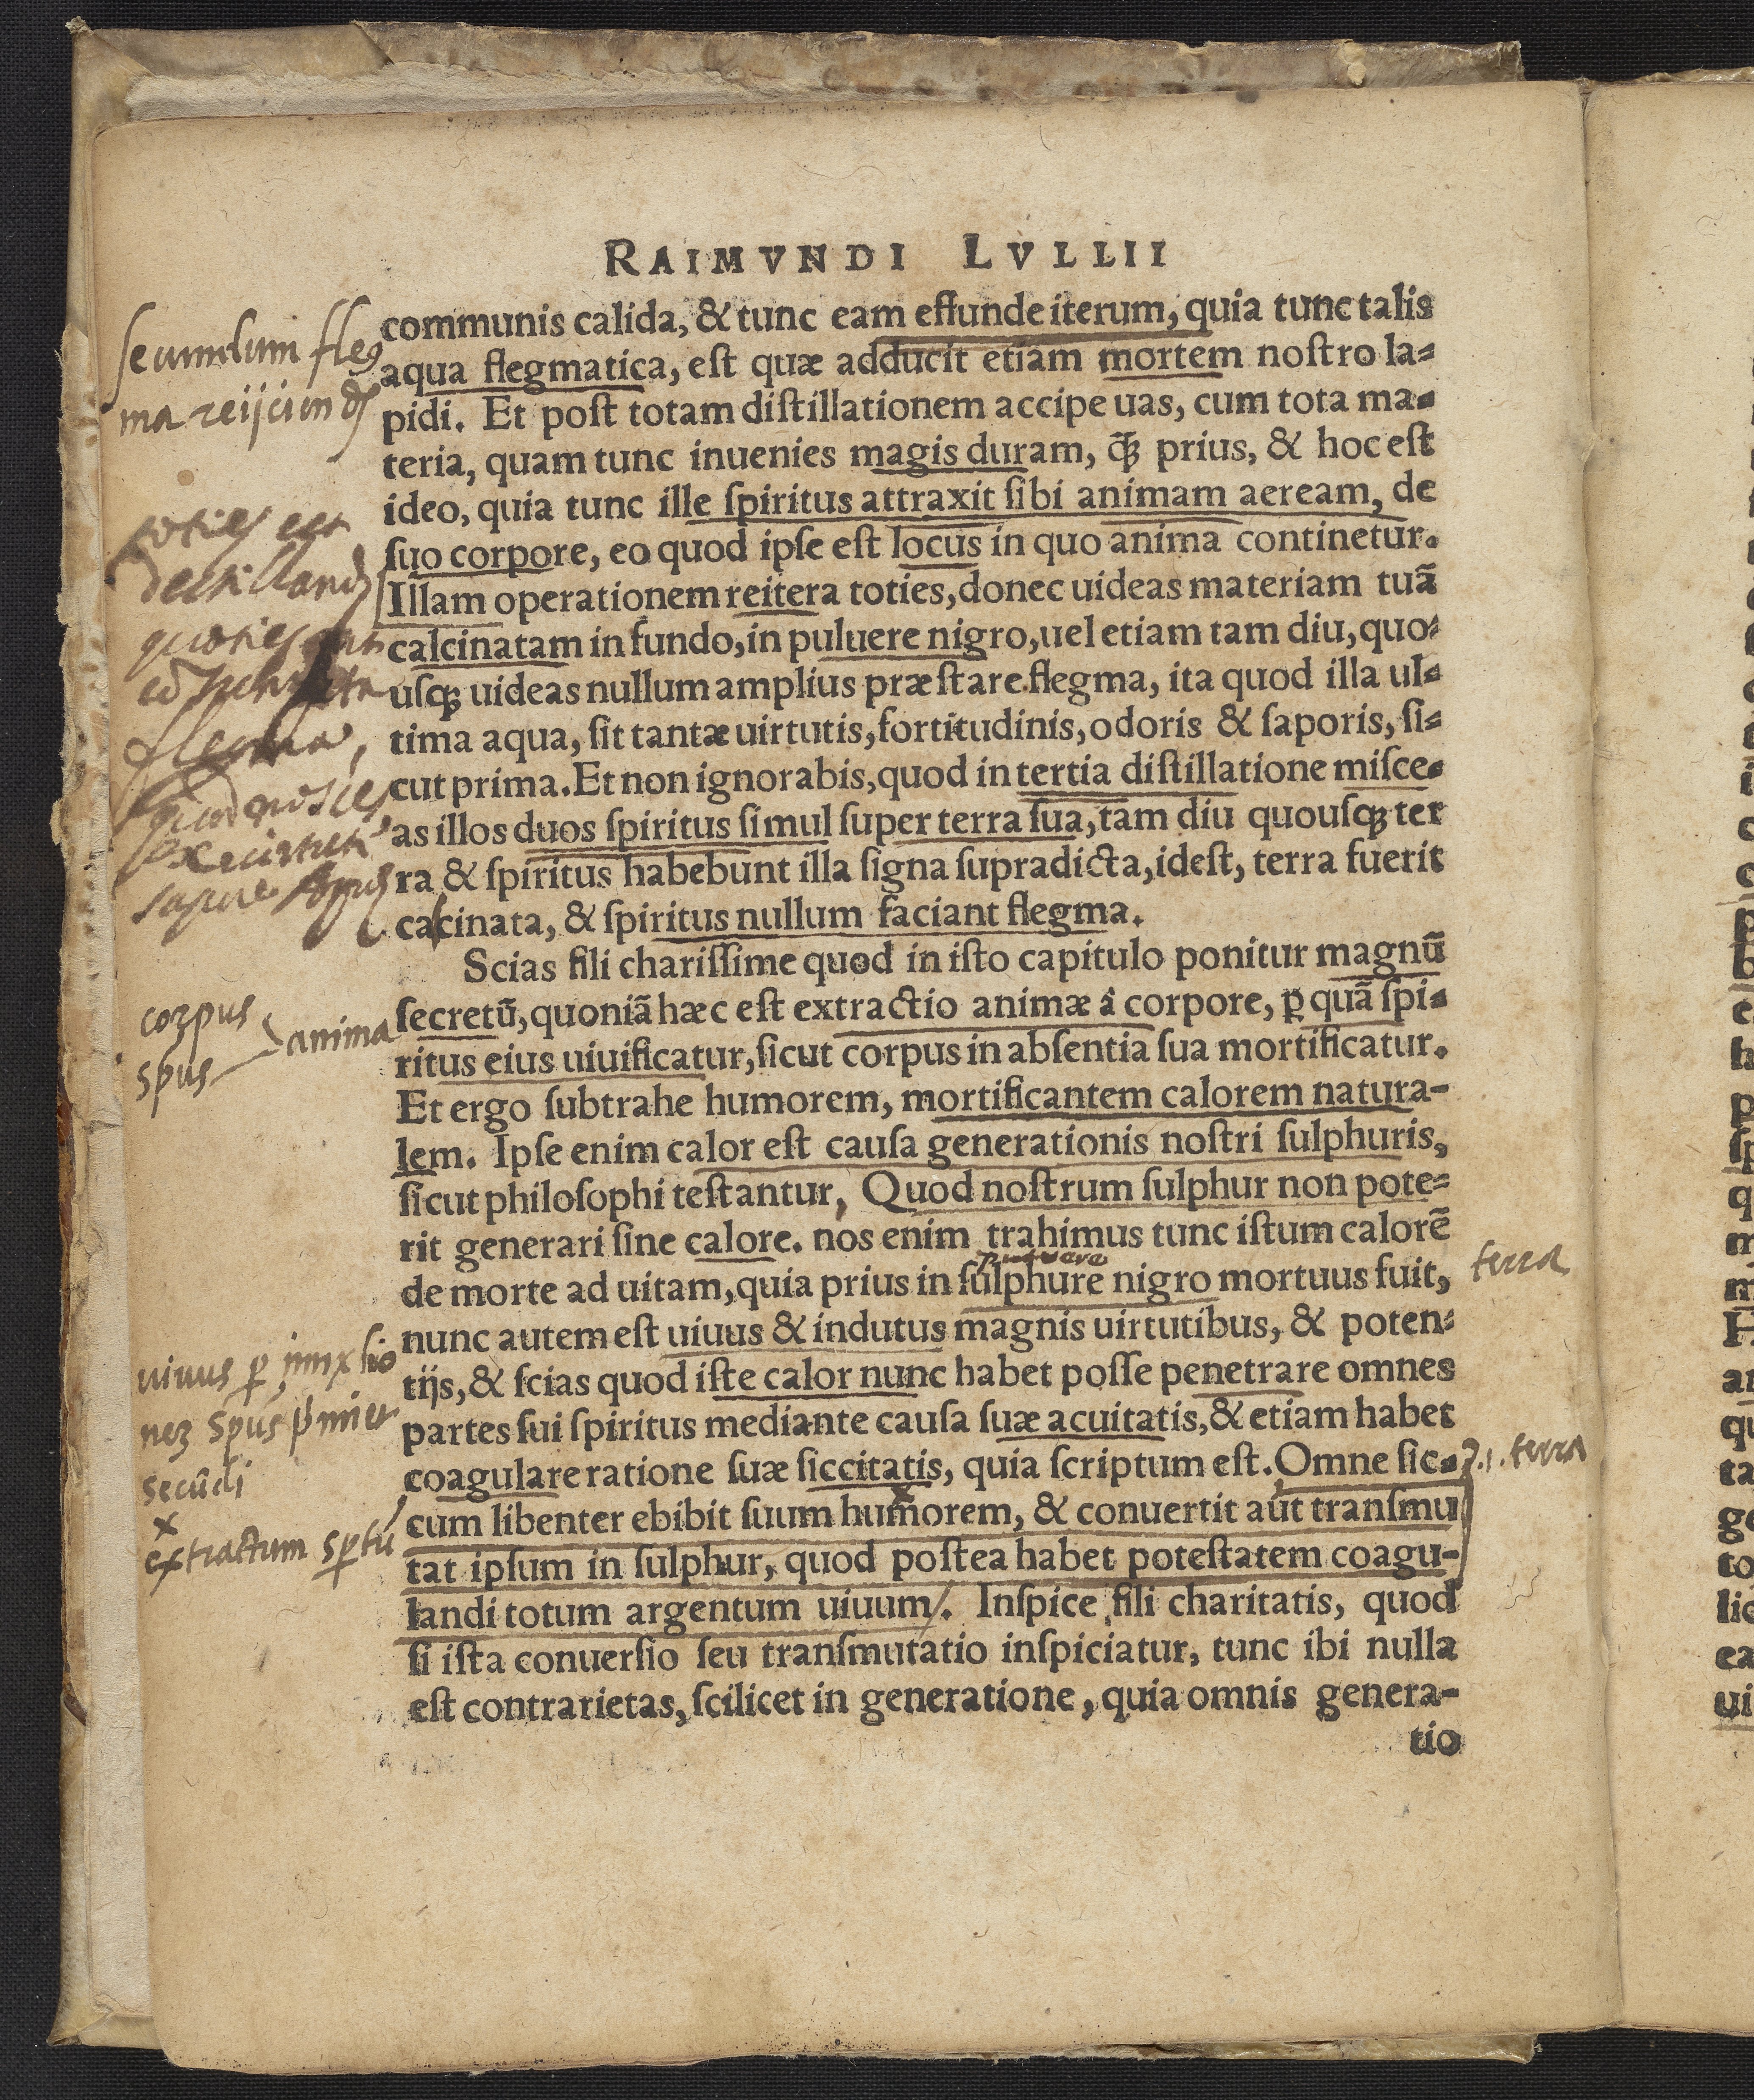 RAIMVNDI LVLLII
communis calida, & tunc eam effunde iterum, quia tunc talis
aqua flegmatica, est quæ adducit etiam mortem nostro la=
pidi. Et post totam distillationem accipe uas, cum tota ma=
teria, quam tunc inuenies magis duram, q̃ꝫ prius, & hoc est
ideo, quia tunc ille spiritus attraxit sibi animam aeream, de
suo corpore, eo quod ipse est locus in quo anima continetur.
Illam operationem reitera toties, donec uideas materiam tuã
calcinatam in fundo, in puluere nigro, uel etiam tam diu, quo=
usqꝫ uideas nullum amplius præstare flegma, ita quod illa ul=
tima aqua, sit tantæ uirtutis, fortitudinis, odoris & saporis, si=
cut prima. Et non ignorabis, quod in tertia distillatione misce=
as illos duos spiritus simul super terra sua, tam diu quousqꝫ ter
ra & spiritus habebunt illa signa supradicta, idest, terra fuerit
calcinata, & spiritus nullum faciant flegma.
Scias fili charissime quod in isto capitulo ponitur magnũ
secretũ, quoniã hæc est extractio animæ â corpore, ꝑ quã spi=
ritus eius uiuificatur, sicut corpus in absentia sua mortificatur.
Et ergo subtrahe humorem, mortificantem calorem natura-
lem. Ipse enim calor est causa generationis nostri sulphuris,
sicut philosophi testantur, Quod nostrum sulphur non pote=
rit generari sine calore. nos enim trahimus tunc istum calorẽ
puluere
de morte ad uitam, quia prius in sulphure nigro mortuus fuit,
nunc autem est uiuus & indutus magnis uirtutibus, & poten=
tijs, & scias quod iste calor nunc habet posse penetrare omnes
partes sui spiritus mediante causa suæ acuitatis, & etiam habet
coagulare ratione suæ siccitatis, quia scriptum est. Omne sic=
cum libenter ebibit suum humorem, & conuertit aut transmu
tat ipsum in sulphur, quod postea habet potestatem coagu-
landi totum argentum uiuum. Inspice fili charitatis, quod
si ista conuersio seu transmutatio inspiciatur, tunc ibi nulla
est contrarietas, scilicet in generatione, quia omnis genera-
tio
fleg
ma
toties est
flegma,
corpus
spus
anima
terra
uiuus ꝑ
spus
secũdi
x
extractum
terra